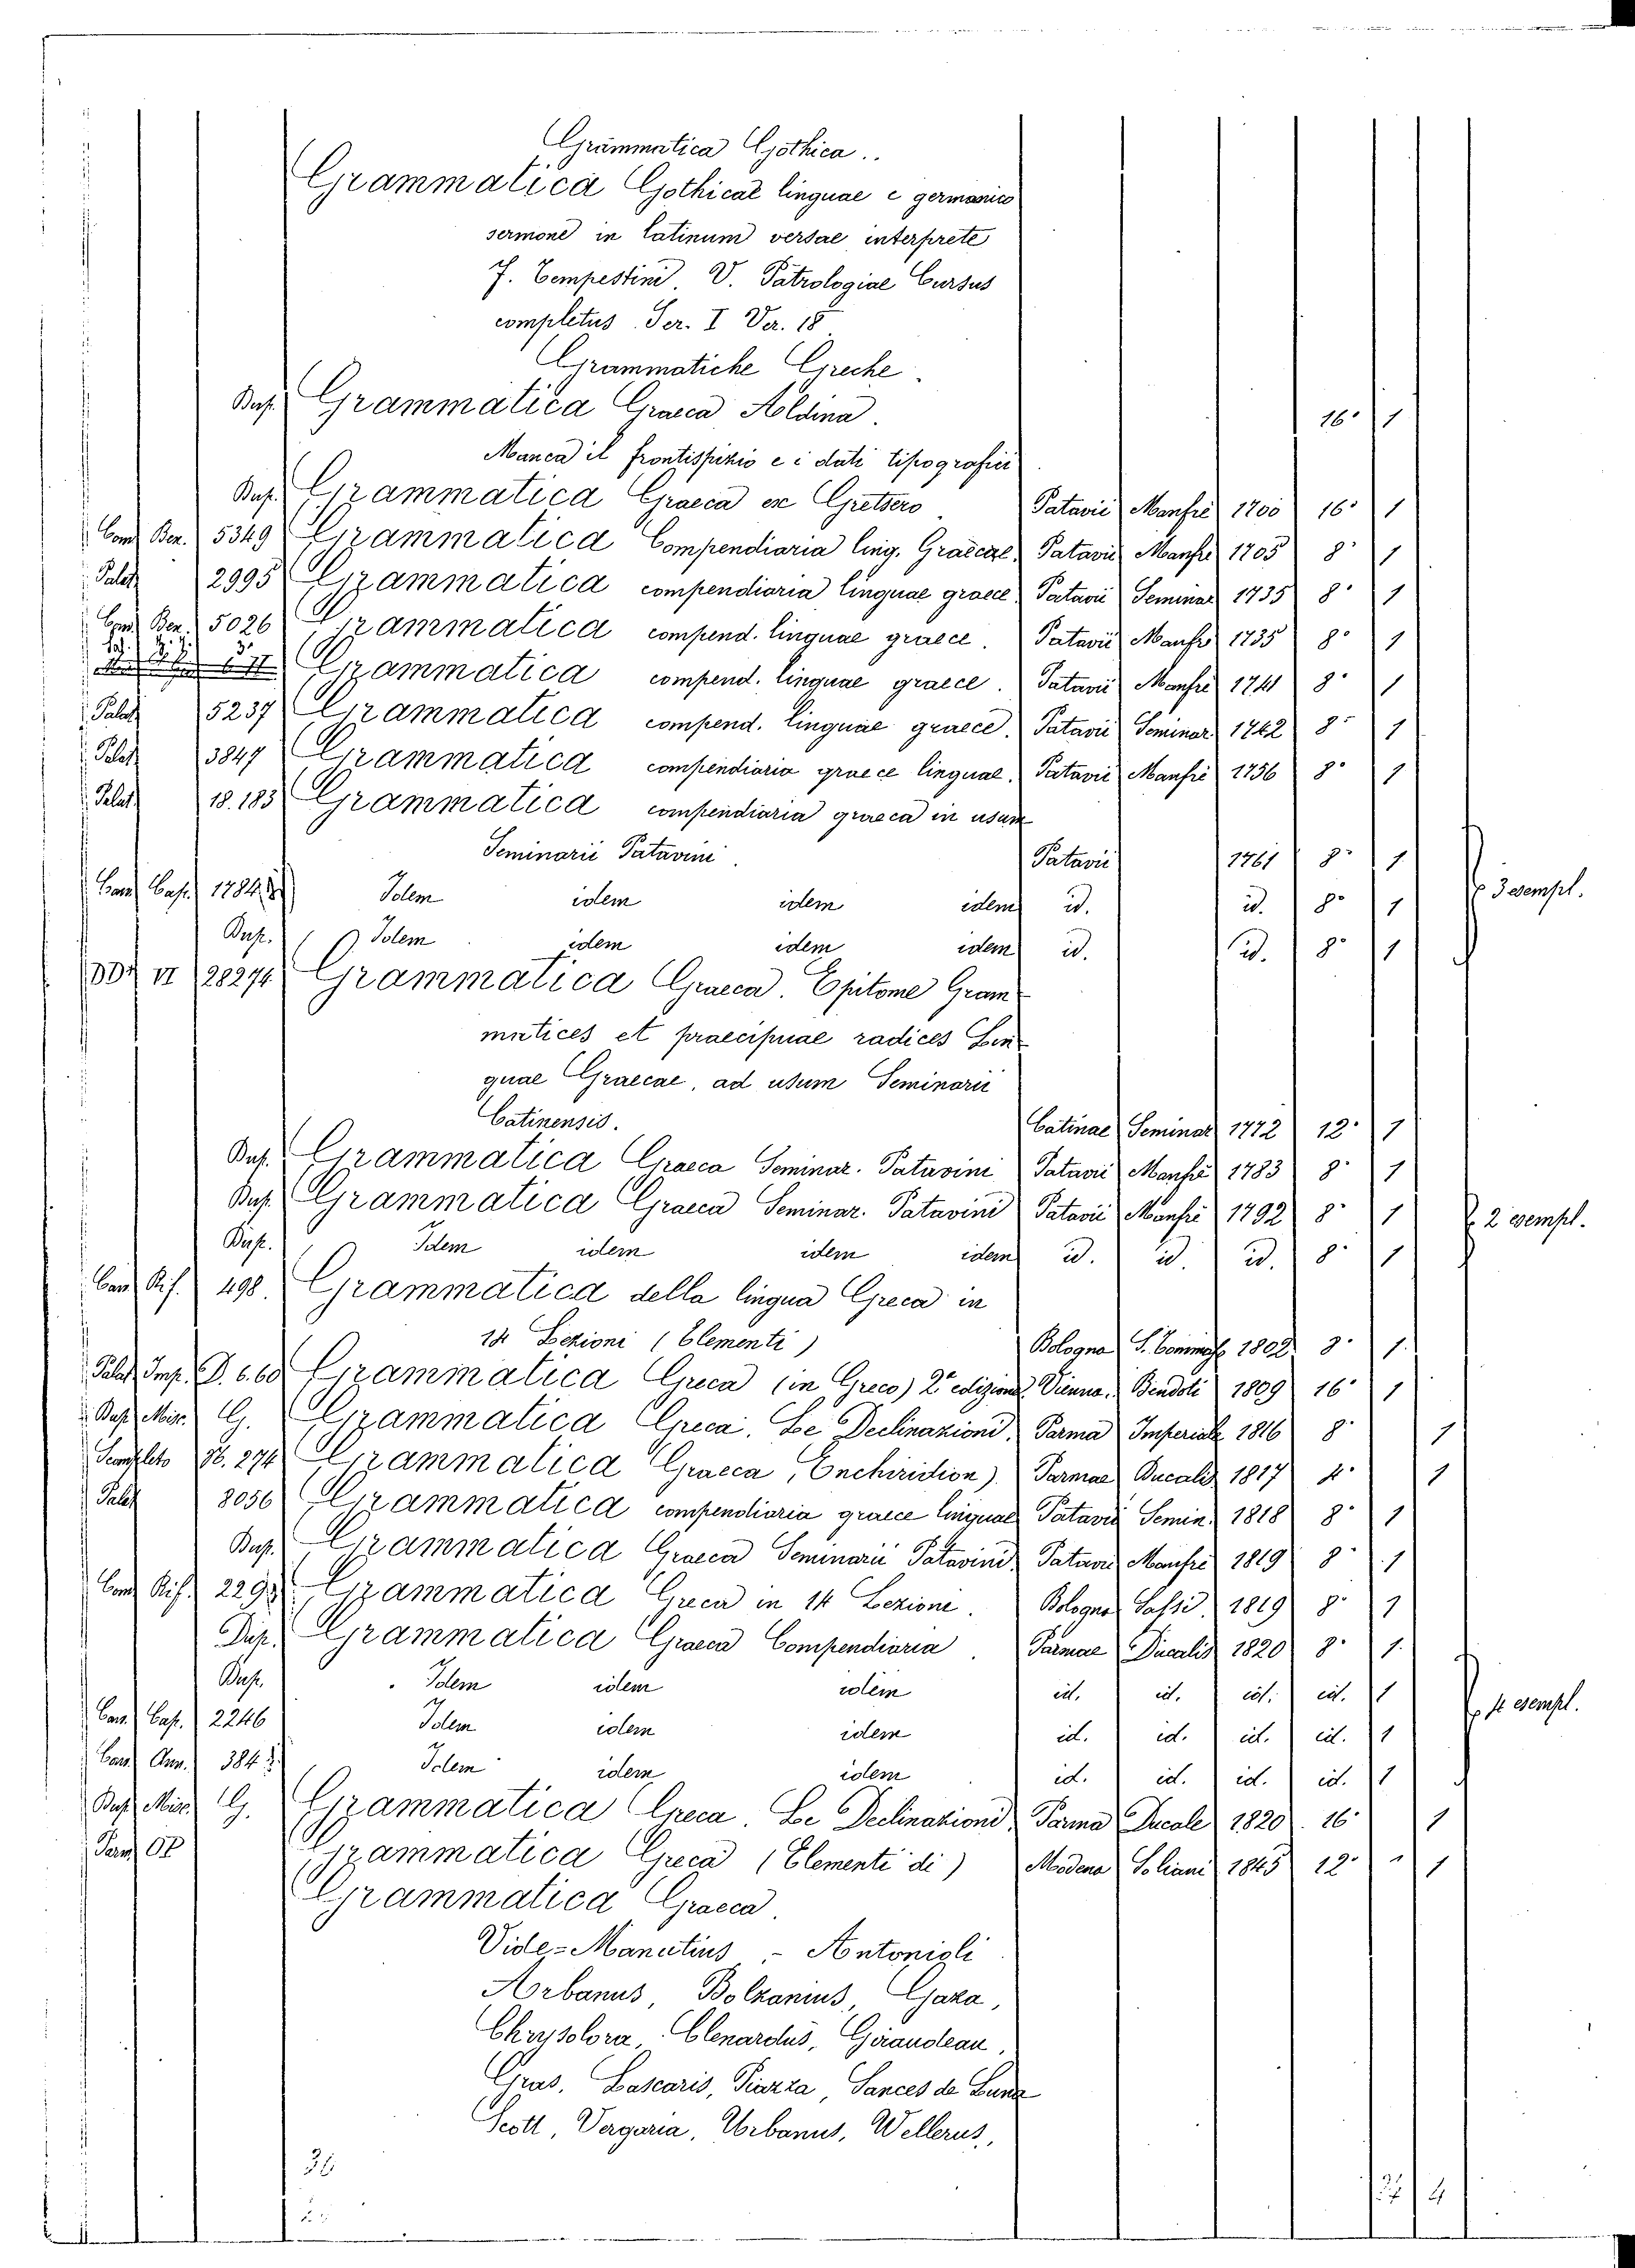 Grammatica Gothica..
Grammatica Gothicae linguae e germanico
sermone in latinum versae interprete
J. Tempestini. V. Patrologiae Cursus
completus Ser. I Vo. 18
Grammatiche Greche.
Dup. Grammatica Graeca Aldina. 16° 1
Manca il frontispizio e i dati tipografici
Dup. Grammatica Graeca ex Gretsero. Patavii Manfrè 1700 16° 1
Com Ben. 5349 Grammatica Compendiaria ling. Graecae, Patavii Manfrè 1705 8° 1
Palat 2995 Grammatica compendiaria linguae graece, Patavii Seminar 1735 8° 1
Com Ben. 5026 Grammatica compend. linguae graece. Patavii Manfrè 1735 8° 1
Grammatica compend. linguae graece. Patavii Manfrè 1741 8° 1
Palat 5237 Grammatica compend. linguae graece. Patavii Seminar 1742 8° 1
Palat 3847 Grammatica compendiaria graece linguae, Patavii Manfrè 1756 8° 1
Palat 18.183 Grammatica compendiaria graeca in usum
Seminarii Patavini. Patavii 1761 8° 1
Can Cap. 1784 Idem idem idem idem id. id. 8° 1 3 esempl.
Dup. Idem idem idem idem id. id. 8° 1
DD VI 28274 Grammatica Graeca. Epitome Gram
matices et praecipuae radices Lin
guae Graecae, ad usum Seminarii
Catinensis. Catinae Seminar 1772 12° 1
Dup. Grammatica Graeca Seminar. Patavini Patavii Manfrè 1783 8° 1
Dup. Grammatica Graeca Seminar. Patavini Patavii Manfrè 1792 8° 1 2 esempl.
Dup. Idem idem idem idem id. id. id. 8° 1
Can Rif. 498 Grammatica della lingua Greca in
14 Lezioni (Elementi) Bologna S. Tommaso 1802 8° 1
Palat Imp. D. 6.60 Grammatica Greca (in Greco) 2ª edizione Vienna. Bendoti 1809 16° 1
Dup. Misc. G. Grammatica Greca. Le Declinazioni, Parma Imperiale 1816 8° 1
Grammatica Graeca, (Enchiridion). Parmae Ducalis 1817 4° 1
Palat 8056 Grammatica compendiaria graece linguae Patavii Semin. 1818 8° 1
Dup. Grammatica Graeca Seminarii Patavini, Patavii Manfrè 1819 8° 1
Can Rif. Grammatica Greca in 14 Lezione. Bologna Sassi 1819 8° 1
Dup. Grammatica Graeca Compendiaria. Parmae Ducalis 1820 8° 1
Dup. Idem idem idem id. id. id. id. 1 4 esempl.
Can Cap. 2246 Idem idem idem id. id. id. id. 1
Can Ann. 384 Idem idem idem id. id. id. id. 1
Dup. Misc. G. Grammatica Greca. Le Declinazioni, Parma Ducale 1820. 16° 1
Parm Grammatica Greca (Elementi di) Modena Soliani 1845 12° 1
Grammatica Graeca.
Vide=Manutius - Antonioli
Arbanus, Bolzanius, Gaza,
Chrysolora, Clenardus, Giraudeau,
Gras, Lascaris, Piazza, Sances de Luna
Scott, Vergaria, Urbanus, Wellerus,
4